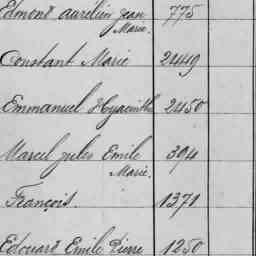 Edmond Aurélien Jean 775
Marie.
Constant Marie 2449
Emmanuel Hyacinthe 2450
Marcel Jules Emile 394
Marie.
François. 1371
Edouard Emile Pierre 1250